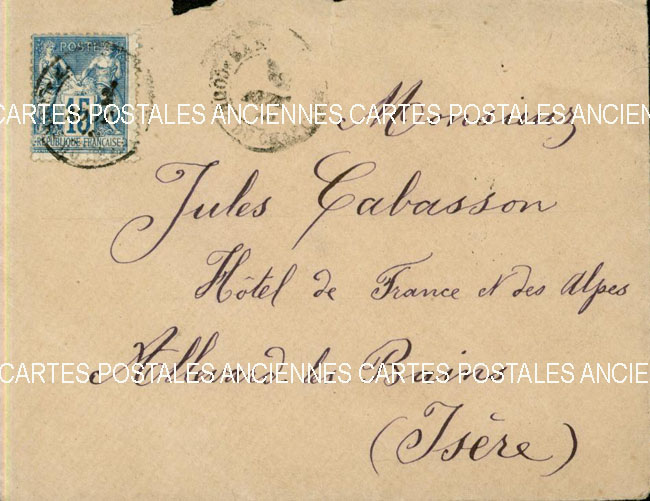 POSTES
15
REPUBLIQUE FRANÇAISE
CARTES POSTALES ANCIENNES CARTES POSTALES ANCIENNES CARTES
Monsieur
Jules Cabasson
Hôtel de France et des Alpes
CARTES POSTALES ANCIENNES CARTES POSTALES ANCIEN
Allevard les Bains
(Isère)